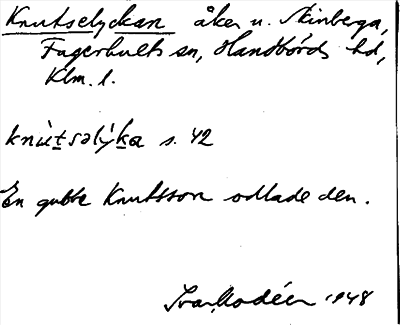 Knutselyckan åker u. Skinberga,
Fagerhults sn, Handbörds hd,
Klm. l.
knùt̲səlýk̲a s. 42
En gubbe Knutsson odlade den.
Ivar Modéer 1948